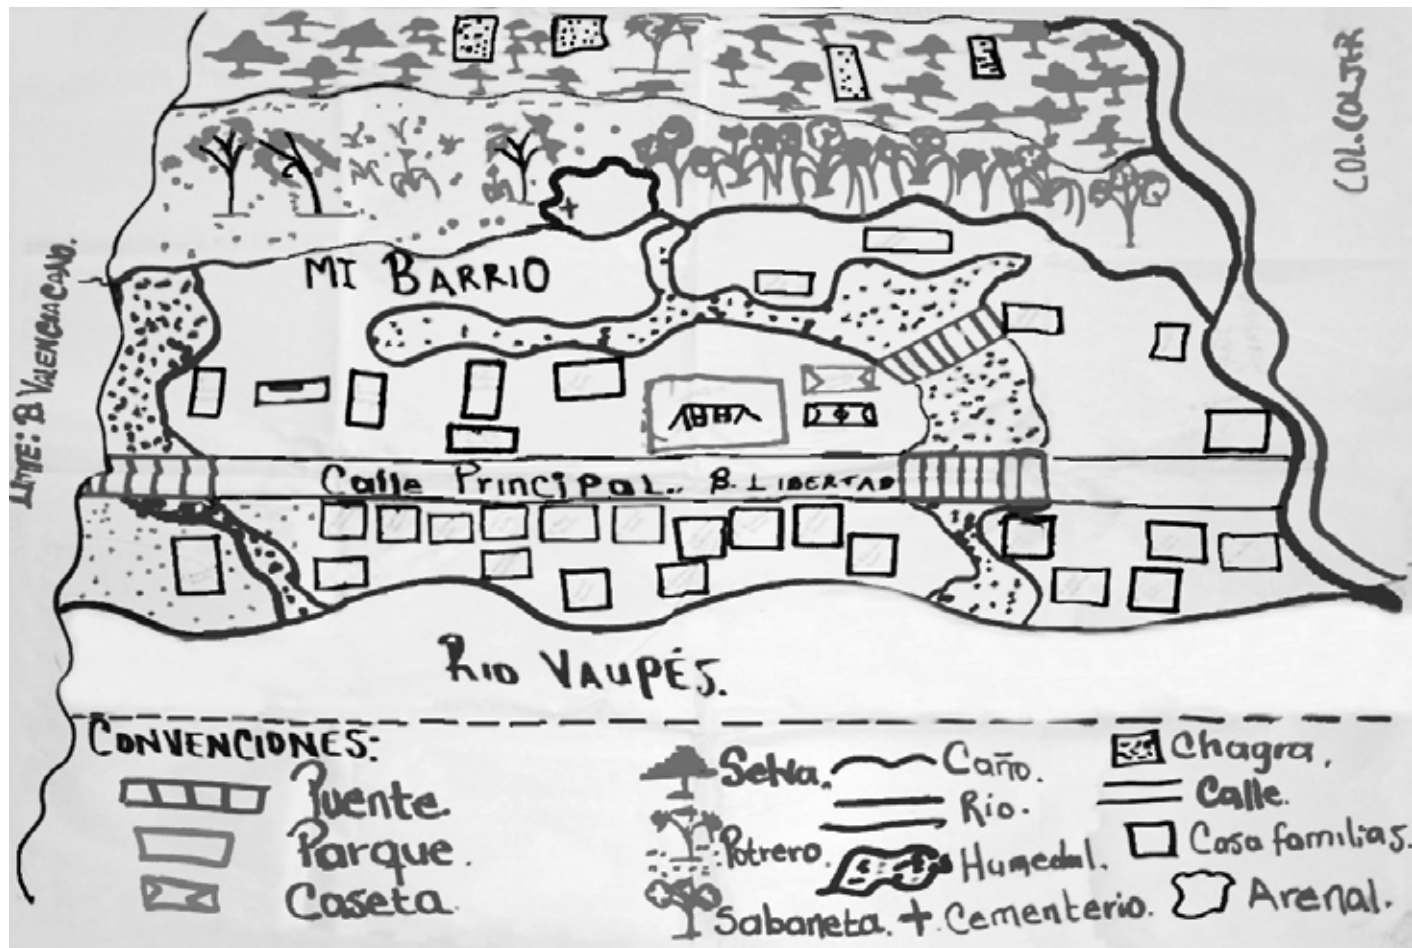 COL. COLJER
MI BARRIO
LIMITE: B VALENCIA CANO.
Calle Principal.. B. LIBERTAD
RIO VAUPÉS.
CONVENCIONES:
Puente.
Parque.
Caseta.
Selva.
Potrero.
Sabaneta.
Caño.
Rio.
Humedal.
+ Cementerio.
Chagra.
Calle.
Casa familias.
Arenal.